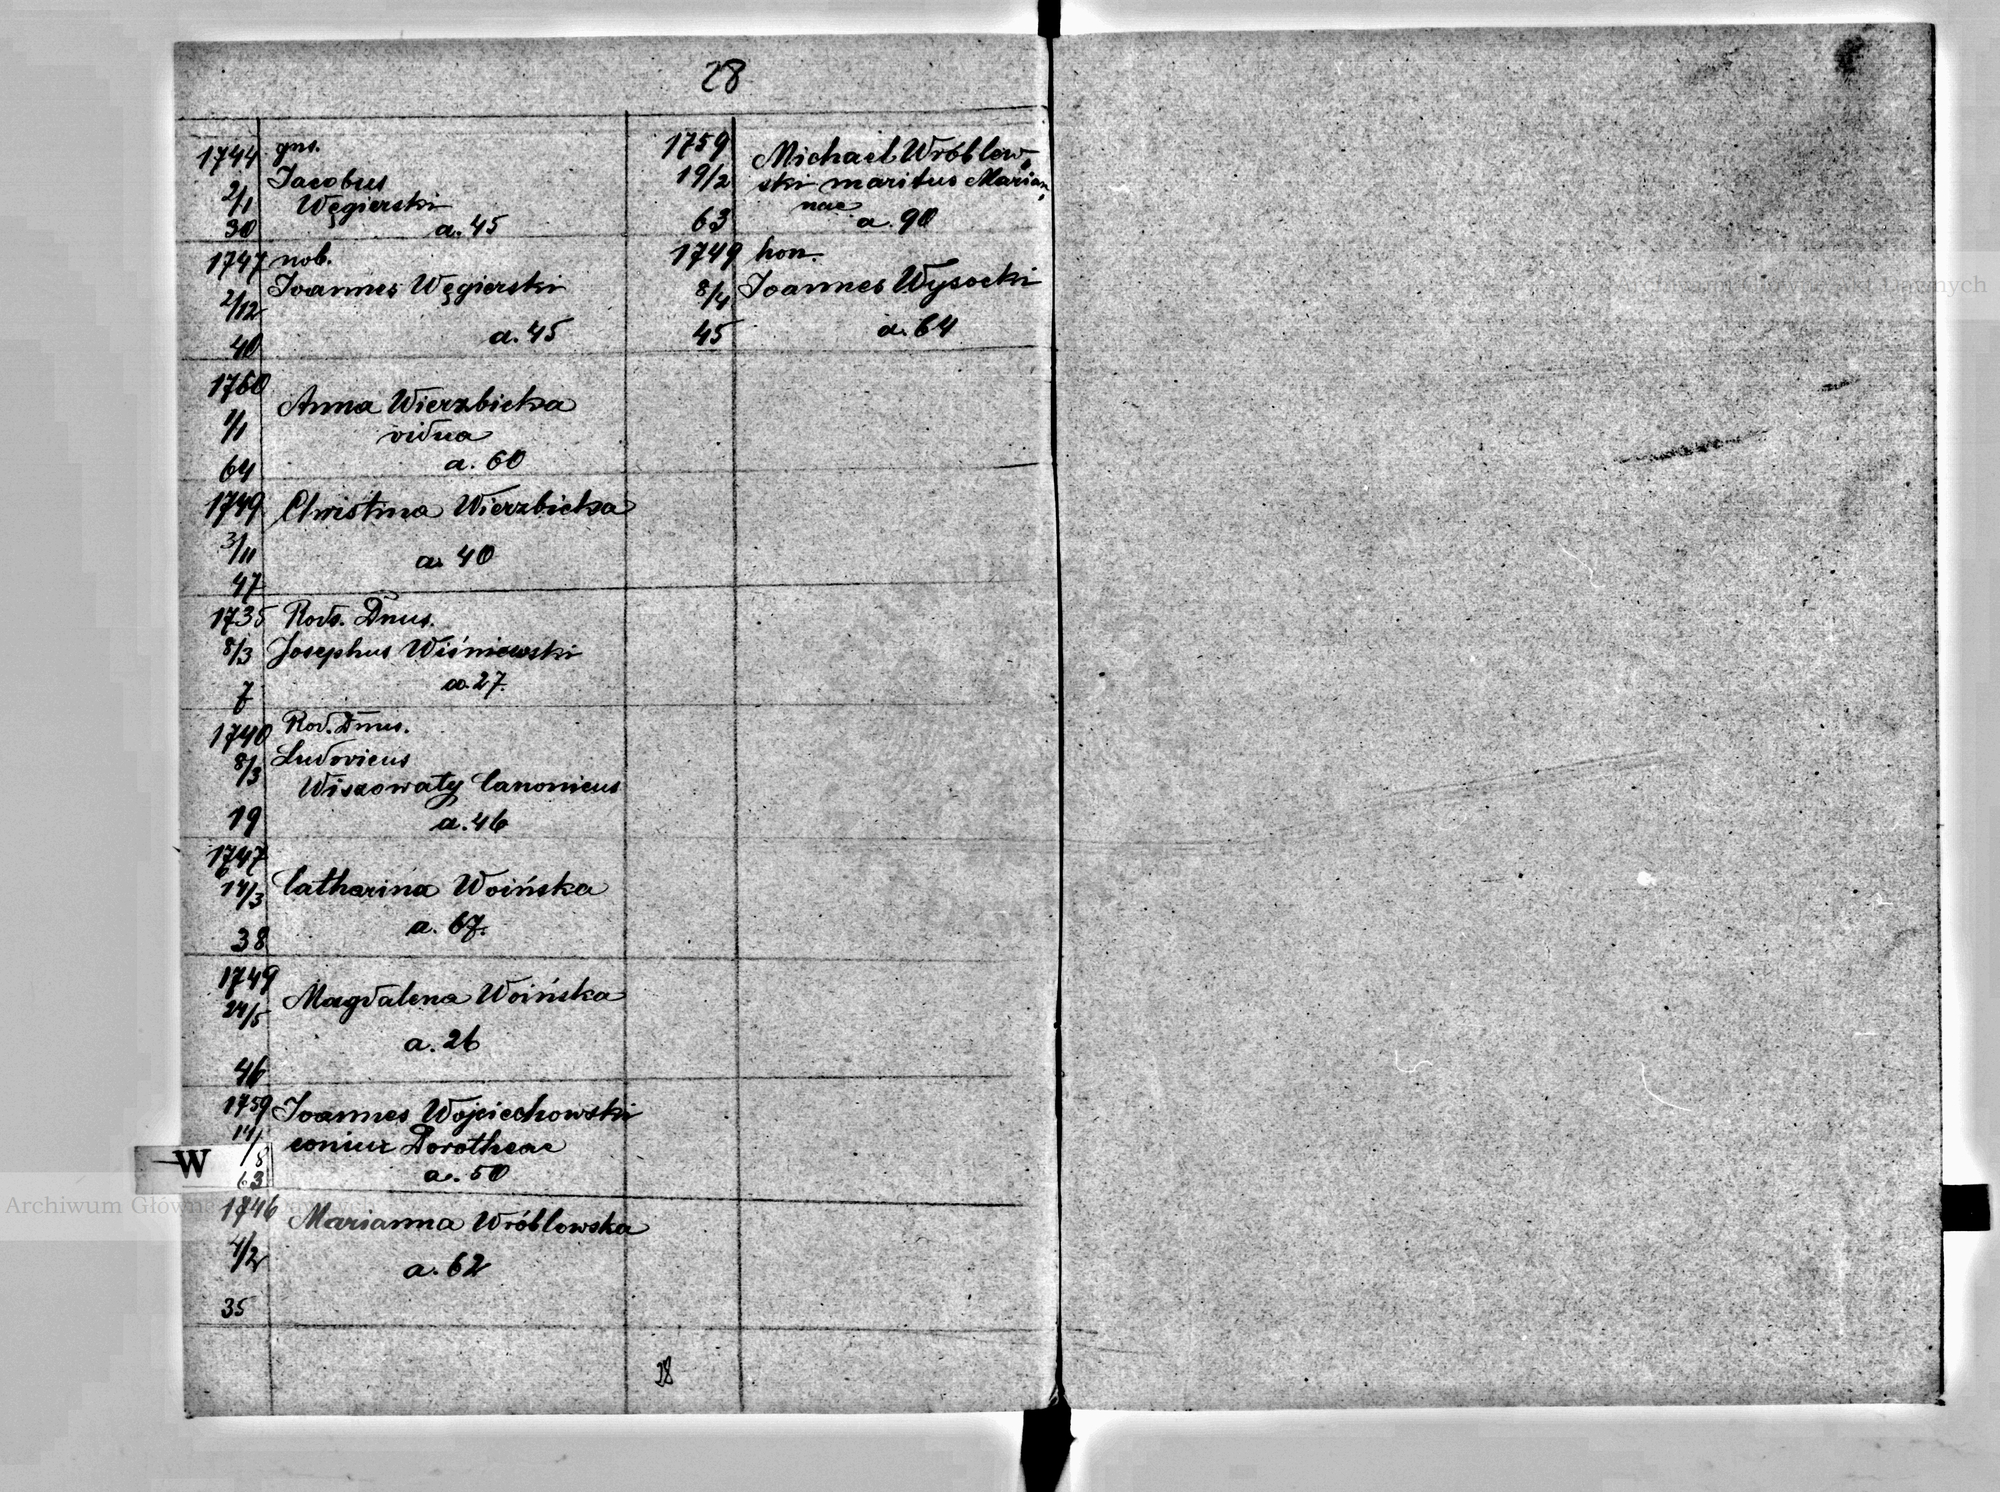 28
1744 gns.
Jacobus
2/1 Węgierski
30 a. 45
1747 nob.
Joannes Węgierski
2/12
40 a. 45
1760
Anna Wierzbicka
1/1 vidua
64 a. 60
1749 Christina Wierzbicka
3/11 a. 40
47
1735 Rvds. Dnus.
8/3 Josephus Wiśniewski
7 a. 27.
1740 Rvd. Dnus.
8/3 Ludovicus
Wiszowaty Canonicus
19 a. 46
1747
14/3 Catharina Woińska
38 a. 67.
1749
24/5 Magdalena Woińska
a. 26
46
1759 Joannes Wojciechowski
14/8 coniux Dorotheae
63 a. 50
W
1746 Marianna Wróblowska
4/2 a. 62
35
1759 Michael Wróblew-
19/2 ski maritus Marian-
nae
63 a. 90
1749 hon.
8/4 Joannes Wysocki
45 a. 64
28
Archiwum Główne
Dawnych